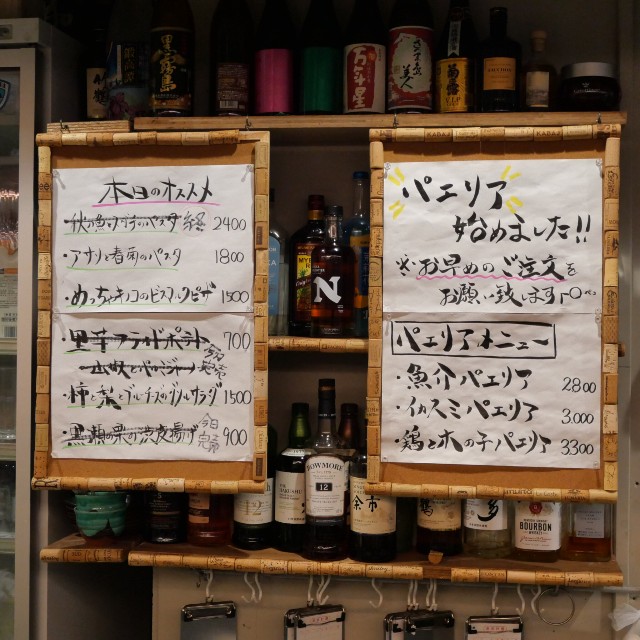 本日のオススメ
パスタ 終 2400
・アナゴと春菊のパスタ 1800
・めっちゃキノコのビスマルクピザ 1500
・里芋フライドポテト 700
・柿と梨とブルチーズのグリルサラダ 1500
・黒瀬の栗の渋皮揚げ 今日完売 900
パエリア
始めました!!
※お早めのご注文を
お願い致します
パエリアメニュー
・魚介パエリア 2800
・イカスミパエリア 3.000
・鶏と木の子パエリア 3300
N
BOWMORE
12
余市
BOURBON